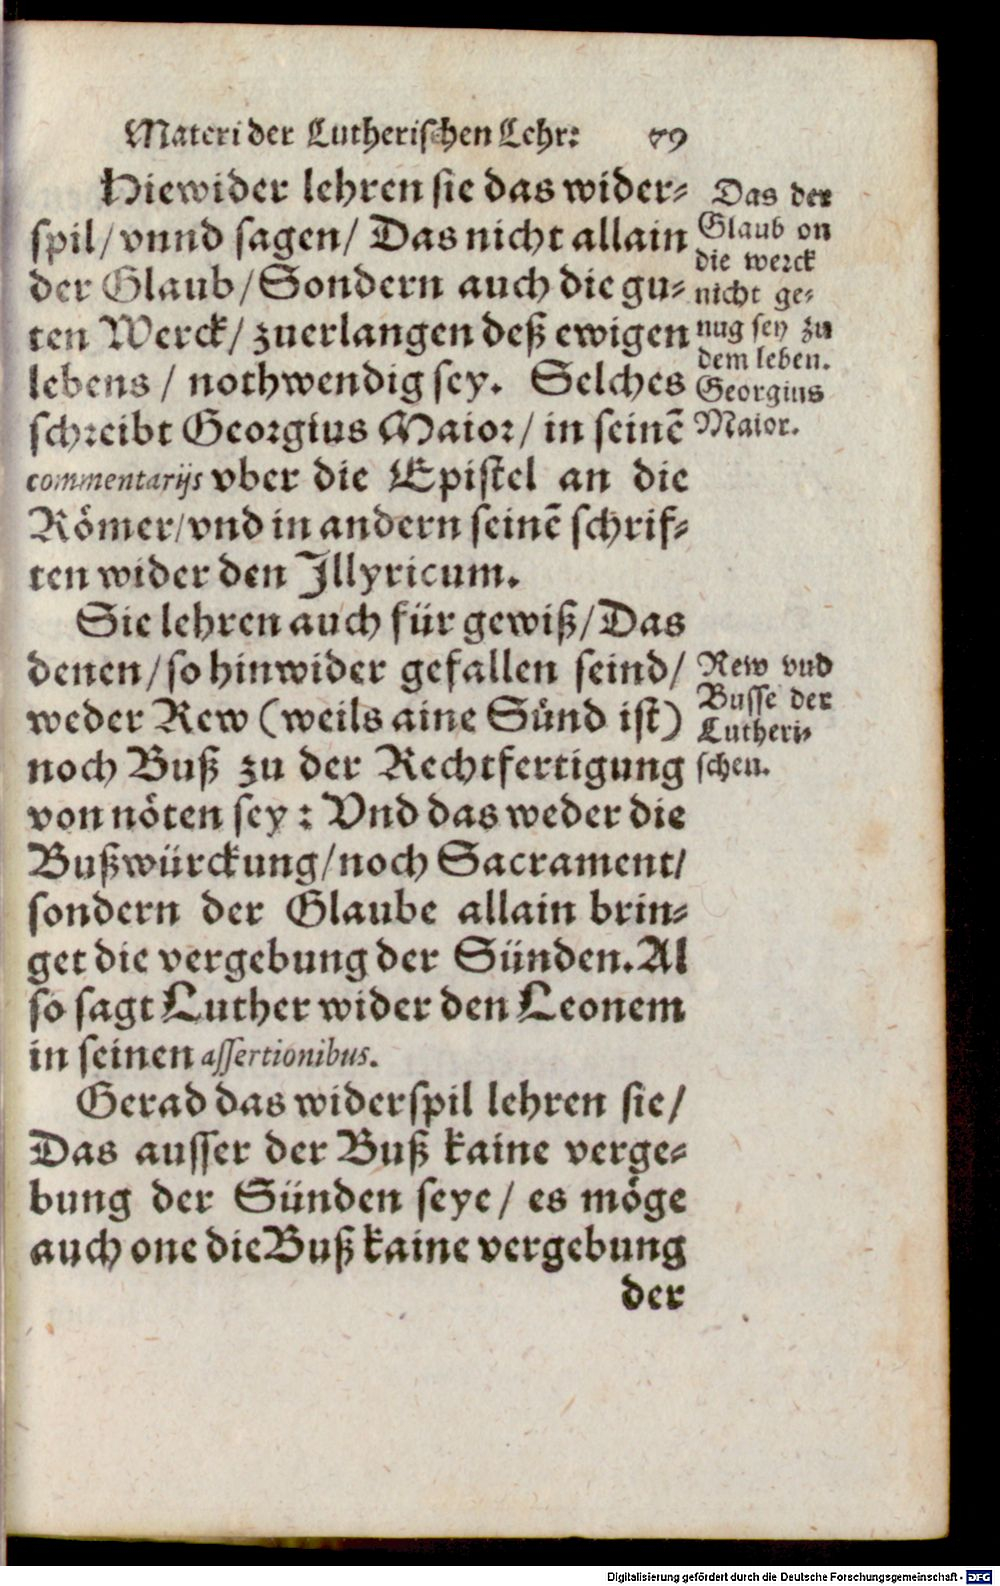 Materi der Lutherischen Lehr: 79
Hiewider lehren sie das wider-
spil/ vnnd sagen/ Das nicht allain
der Glaub/ Sondern auch die gu-
ten Werck/ zuerlangen deß ewigen
lebens / nothwendig sey. Selches
schreibt Georgius Maior/ in seinẽ
commentarijs vber die Epistel an die
Römer/ vnd in andern seinẽ schrif-
ten wider den Illyricum.
Das der
Glaub on
die werck
nicht ge-
nug sey zu
dem leben.
Georgius
Maior.
Sie lehren auch für gewiß/ Das
denen/ so hinwider gefallen seind/
weder Rew (weils aine Sünd ist)
noch Buß zu der Rechtfertigung
von nöten sey: Vnd das weder die
Bußwürckung/ noch Sacrament/
sondern der Glaube allain brin-
get die vergebung der Sünden. Al
so sagt Luther wider den Leonem
in seinen assertionibus.
Rew vnd
Busse der
Lutheri-
schen.
Gerad das widerspil lehren sie/
Das ausser der Buß kaine verge-
bung der Sünden seye/ es möge
auch one die Buß kaine vergebung
der
Digitalisierung gefördert durch die Deutsche Forschungsgemeinschaft - DFG